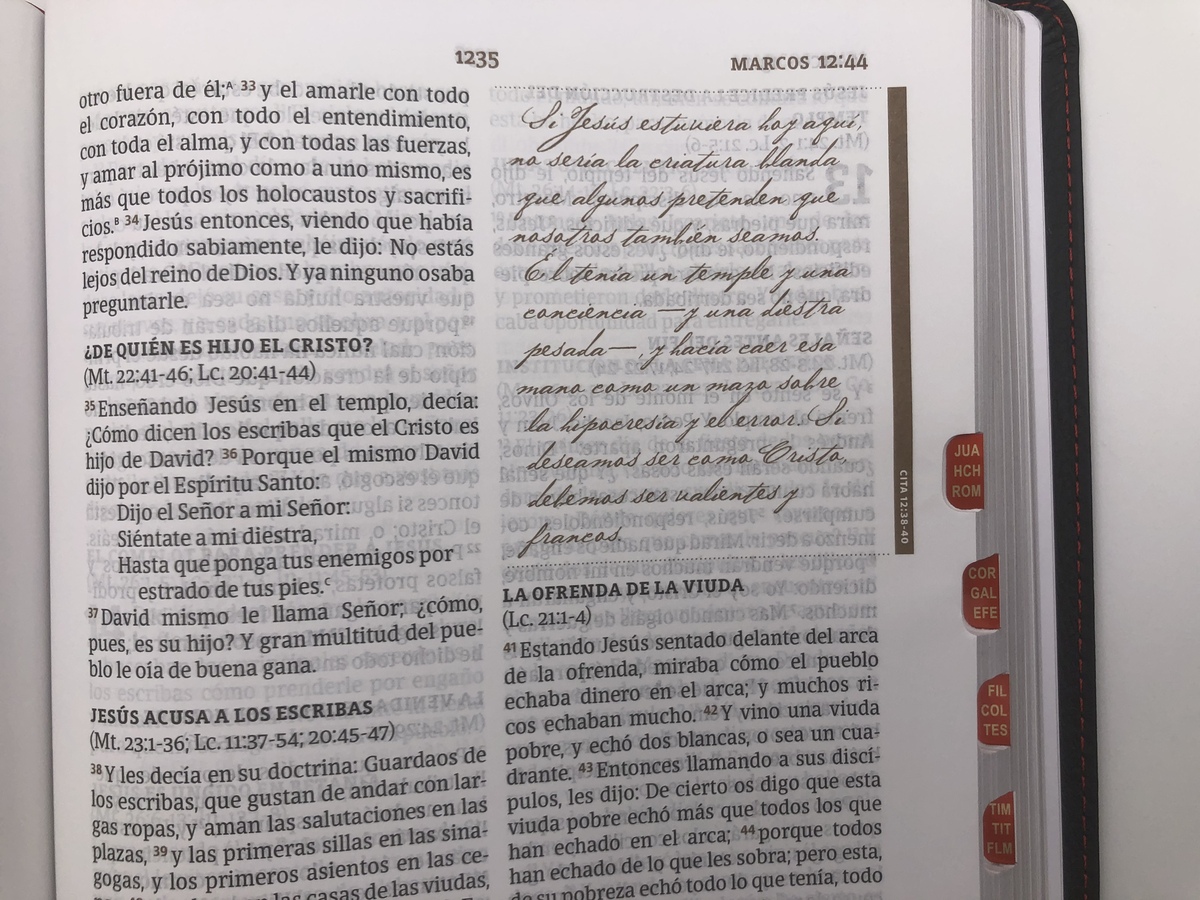 1235
MARCOS 12:44
otro fuera de él;ᴬ ³³ y el amarle con todo
el corazón, con todo el entendimiento,
con toda el alma, y con todas las fuerzas,
y amar al prójimo como a uno mismo, es
más que todos los holocaustos y sacrifi-
cios.ᴮ ³⁴ Jesús entonces, viendo que había
respondido sabiamente, le dijo: No estás
lejos del reino de Dios. Y ya ninguno osaba
preguntarle.
¿DE QUIÉN ES HIJO EL CRISTO?
(Mt. 22:41-46; Lc. 20:41-44)
³⁵ Enseñando Jesús en el templo, decía:
¿Cómo dicen los escribas que el Cristo es
hijo de David? ³⁶ Porque el mismo David
dijo por el Espíritu Santo:
Dijo el Señor a mi Señor:
Siéntate a mi diestra,
Hasta que ponga tus enemigos por
estrado de tus pies.ᶜ
³⁷ David mismo le llama Señor; ¿cómo,
pues, es su hijo? Y gran multitud del pue-
blo le oía de buena gana.
JESÚS ACUSA A LOS ESCRIBAS
(Mt. 23:1-36; Lc. 11:37-54; 20:45-47)
³⁸ Y les decía en su doctrina: Guardaos de
los escribas, que gustan de andar con lar-
gas ropas, y aman las salutaciones en las
plazas, ³⁹ y las primeras sillas en las sina-
gogas, y los primeros asientos en las ce-
las casas de las viudas,
Si Jesús estuviera hoy aquí,
no sería la criatura blanda
que algunos pretenden que
nosotros también seamos.
Él tenía un temple y una
conciencia —y una diestra
pesada—, y hacía caer esa
mano como un mazo sobre
la hipocresía y el error. Si
deseamos ser como Cristo,
debemos ser valientes y
francos.
CITA 12:38-40
LA OFRENDA DE LA VIUDA
(Lc. 21:1-4)
⁴¹ Estando Jesús sentado delante del arca
de la ofrenda, miraba cómo el pueblo
echaba dinero en el arca; y muchos ri-
cos echaban mucho. ⁴² Y vino una viuda
pobre, y echó dos blancas, o sea un cua-
drante. ⁴³ Entonces llamando a sus discí-
pulos, les dijo: De cierto os digo que esta
viuda pobre echó más que todos los que
han echado en el arca; ⁴⁴ porque todos
han echado de lo que les sobra; pero esta,
de su pobreza echó todo lo que tenía, todo
JUA
HCH
ROM
COR
GAL
EFE
FIL
COL
TES
TIM
TIT
FLM